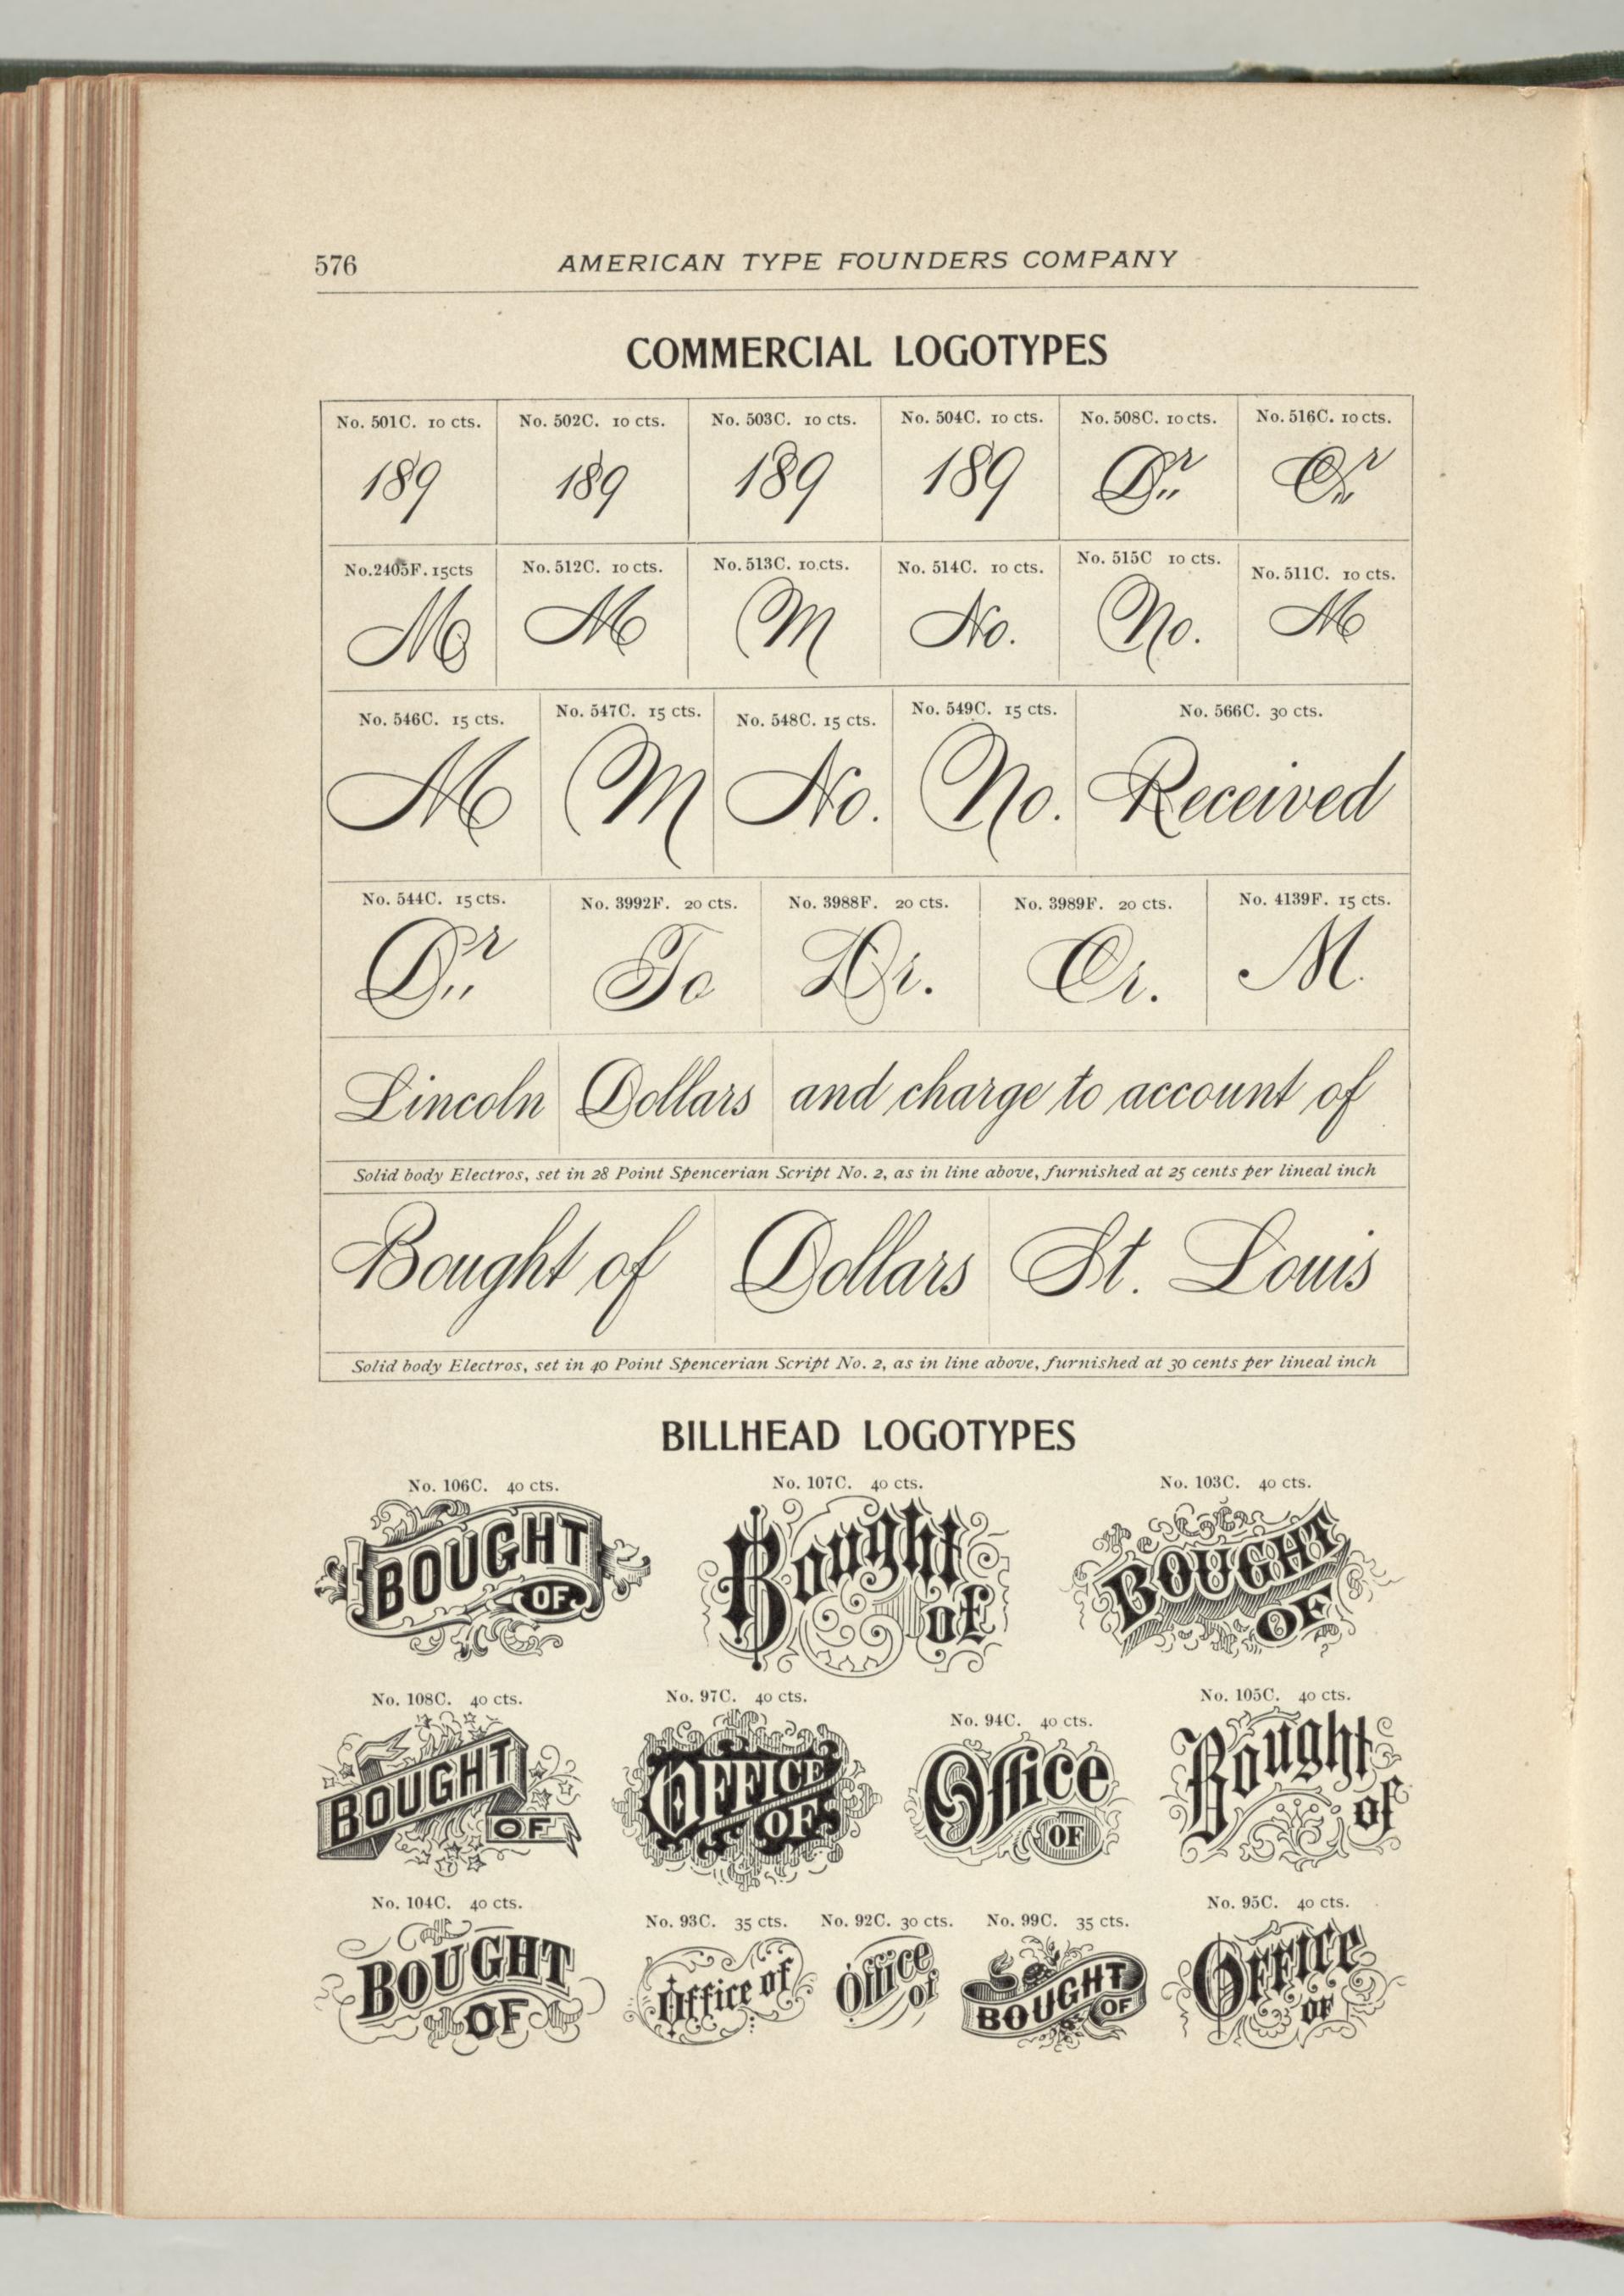 576
AMERICAN TYPE FOUNDERS COMPANY
COMMERCIAL LOGOTYPES
No. 501C. 10 cts. No. 502C. 10 cts. No. 503C. 10 cts. No. 504C. 10 cts. No. 508C. 10 cts. No. 516C. 10 cts.
189 189 189 189 Dr. Cr.
No. 2405F. 15cts No. 512C. 10 cts. No. 513C. 10.cts. No. 514C. 10 cts. No. 515C 10 cts. No. 511C. 10 cts.
M M M No. No. M
No. 546C. 15 cts. No. 547C. 15 cts. No. 548C. 15 cts. No. 549C. 15 cts. No. 566C. 30 cts.
M M No. No. Received
No. 544C. 15 cts. No. 3992F. 20 cts. No. 3988F. 20 cts. No. 3989F. 20 cts. No. 4139F. 15 cts.
Dr. To Dr. Cr. M.
Lincoln Dollars and charge to account of
Solid body Electros, set in 28 Point Spencerian Script No. 2, as in line above, furnished at 25 cents per lineal inch
Bought of Dollars St. Louis
Solid body Electros, set in 40 Point Spencerian Script No. 2, as in line above, furnished at 30 cents per lineal inch
BILLHEAD LOGOTYPES
No. 106C. 40 cts. No. 107C. 40 cts. No. 103C. 40 cts.
BOUGHT OF Bought of BOUGHT OF
No. 108C. 40 cts. No. 97C. 40 cts. No. 94C. 40 cts. No. 105C. 40 cts.
BOUGHT OF OFFICE OF Office OF Bought of
No. 104C. 40 cts. No. 93C. 35 cts. No. 92C. 30 cts. No. 99C. 35 cts. No. 95C. 40 cts.
BOUGHT OF Office of Office of BOUGHT OF OFFICE OF